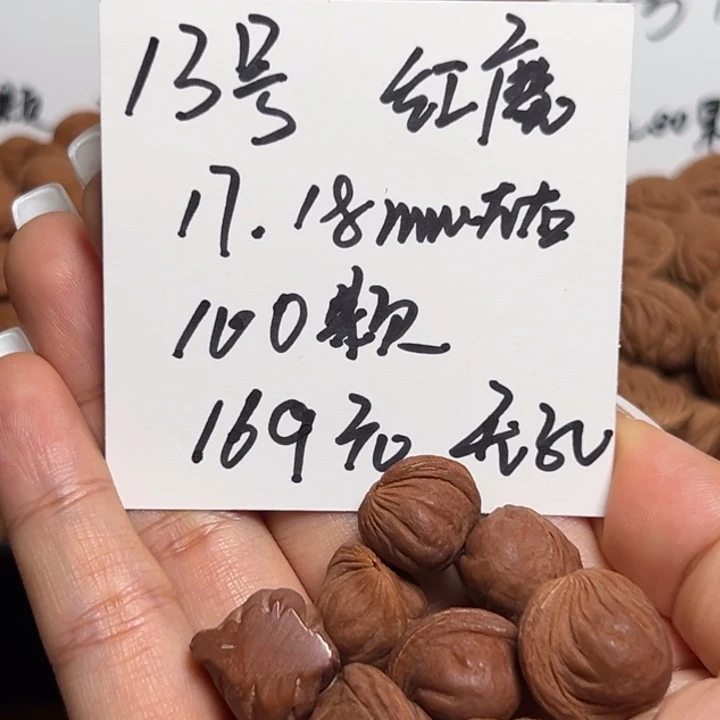 13号 红磨
17.18mm左右
100颗
169元 无孔
颗